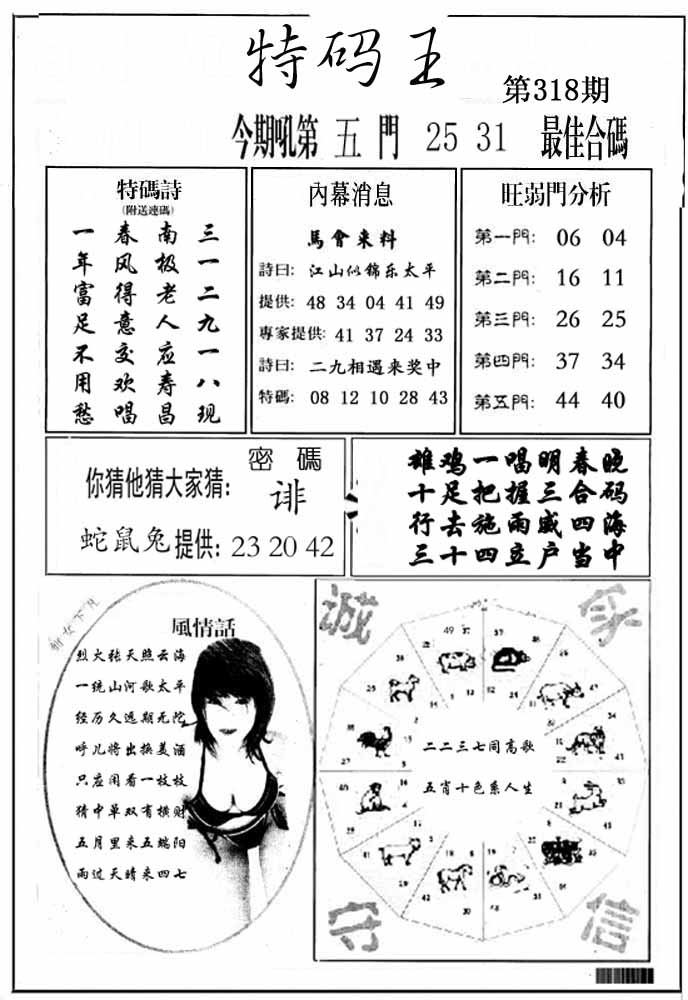 特码王
第318期
今期吼第 五 門 25 31 最佳合碼
特碼詩
(附送連碼)
三一二九一八现
南极老人应寿昌
春风得意交欢唱
一年富足不用愁
內幕消息
馬會来料
詩曰: 江山似锦乐太平
提供: 48 34 04 41 49
專家提供: 41 37 24 33
詩曰: 二九相遇来奖中
特碼: 08 12 10 28 43
旺弱門分析
第一門: 06 04
第二門: 16 11
第三門: 26 25
第四門: 37 34
第五門: 44 40
密 碼
你猜他猜大家猜: 诽
蛇鼠兔提供: 23 20 42
雄鸡一唱明春晚
十足把握三合码
行去施雨威四海
三十四立户当中
風情話
烈火张天照云海
一统山河歌太平
经历久远期无陀
呼儿将出换美酒
只应闲看一枝枝
猜中单双有横财
五月里来五端阳
雨过天晴来四七
诚
家
守
信
二二三七同高歌
五肖十色系人生